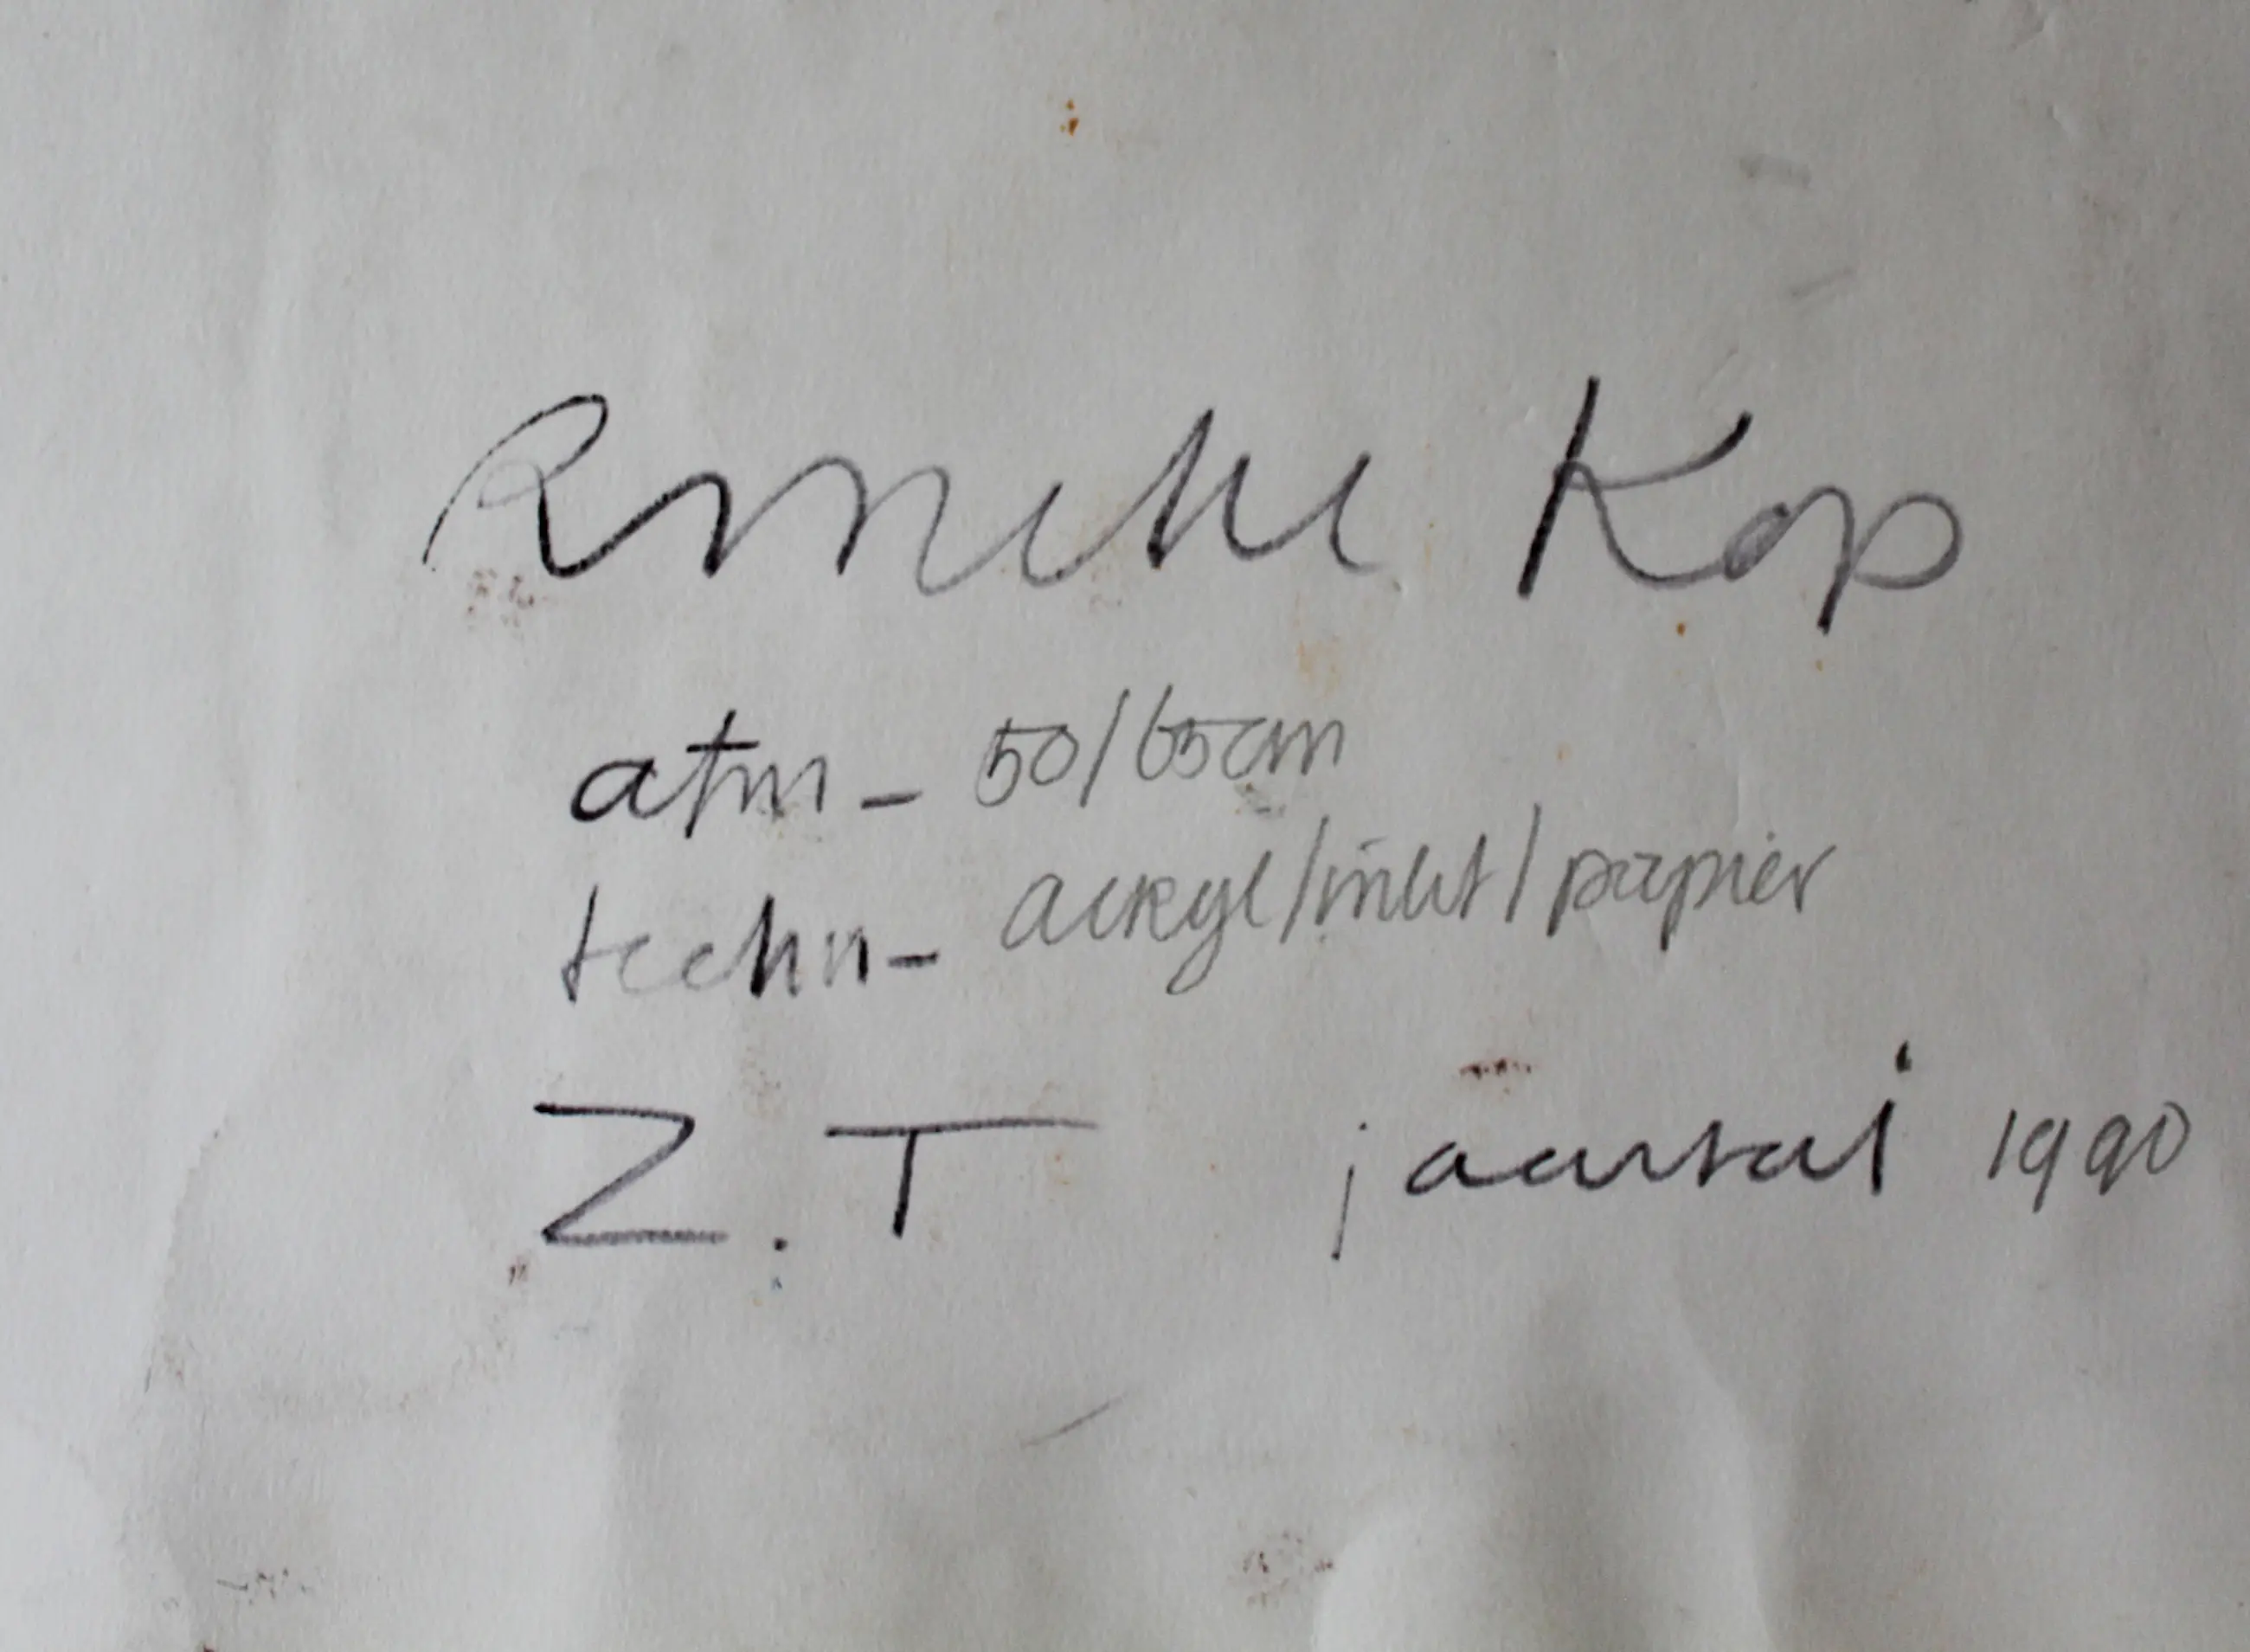 Rineke Kop
afm - 50/65cm
techn - acryl/inkt/papier
Z.T jaartal 1990